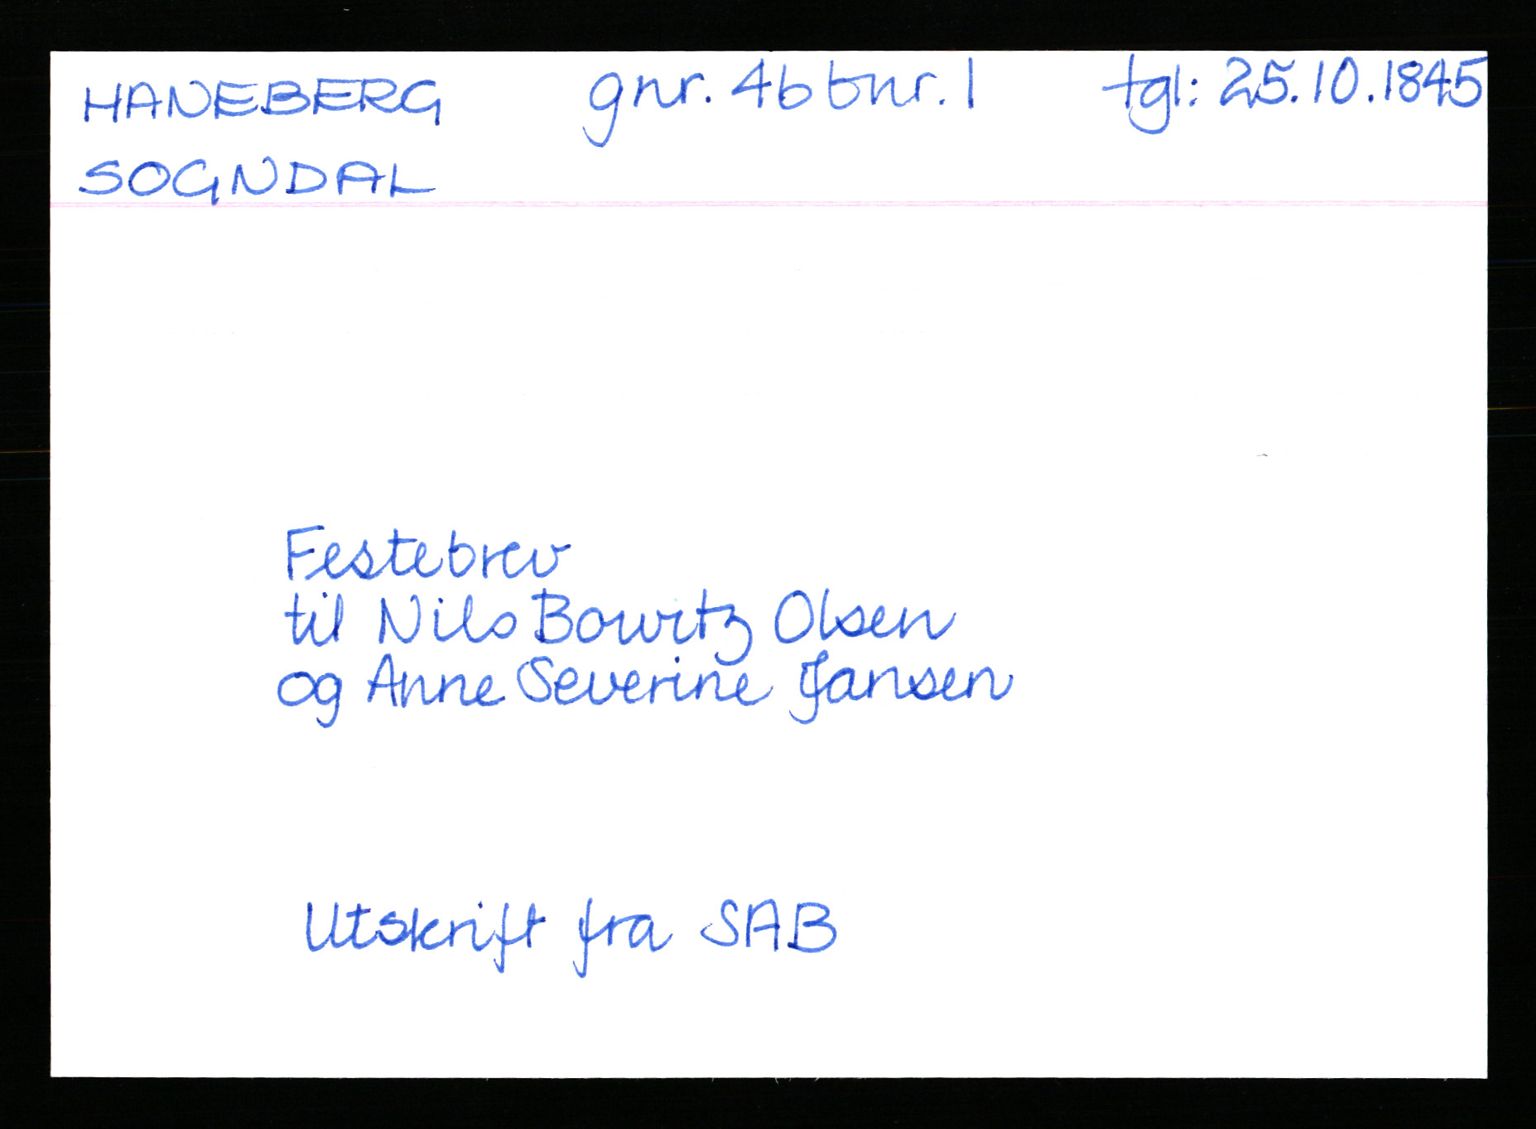 HANEBERG gnr. 46 bnr. 1 tgl: 25.10.1845
SOGNDAL
Festebrev
til Nils Bowitz Olsen
og Anne Severine Jansen
Utskrift fra SAB